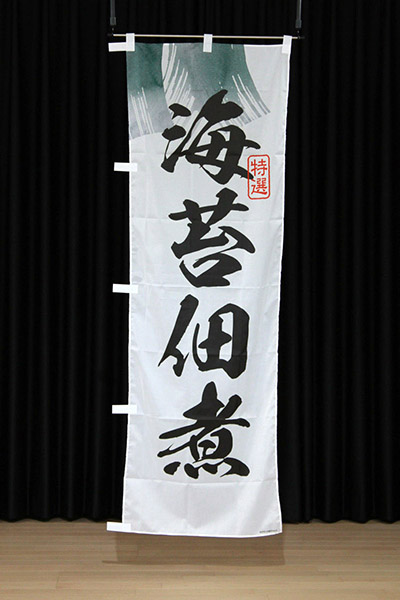 海苔佃煮
特選